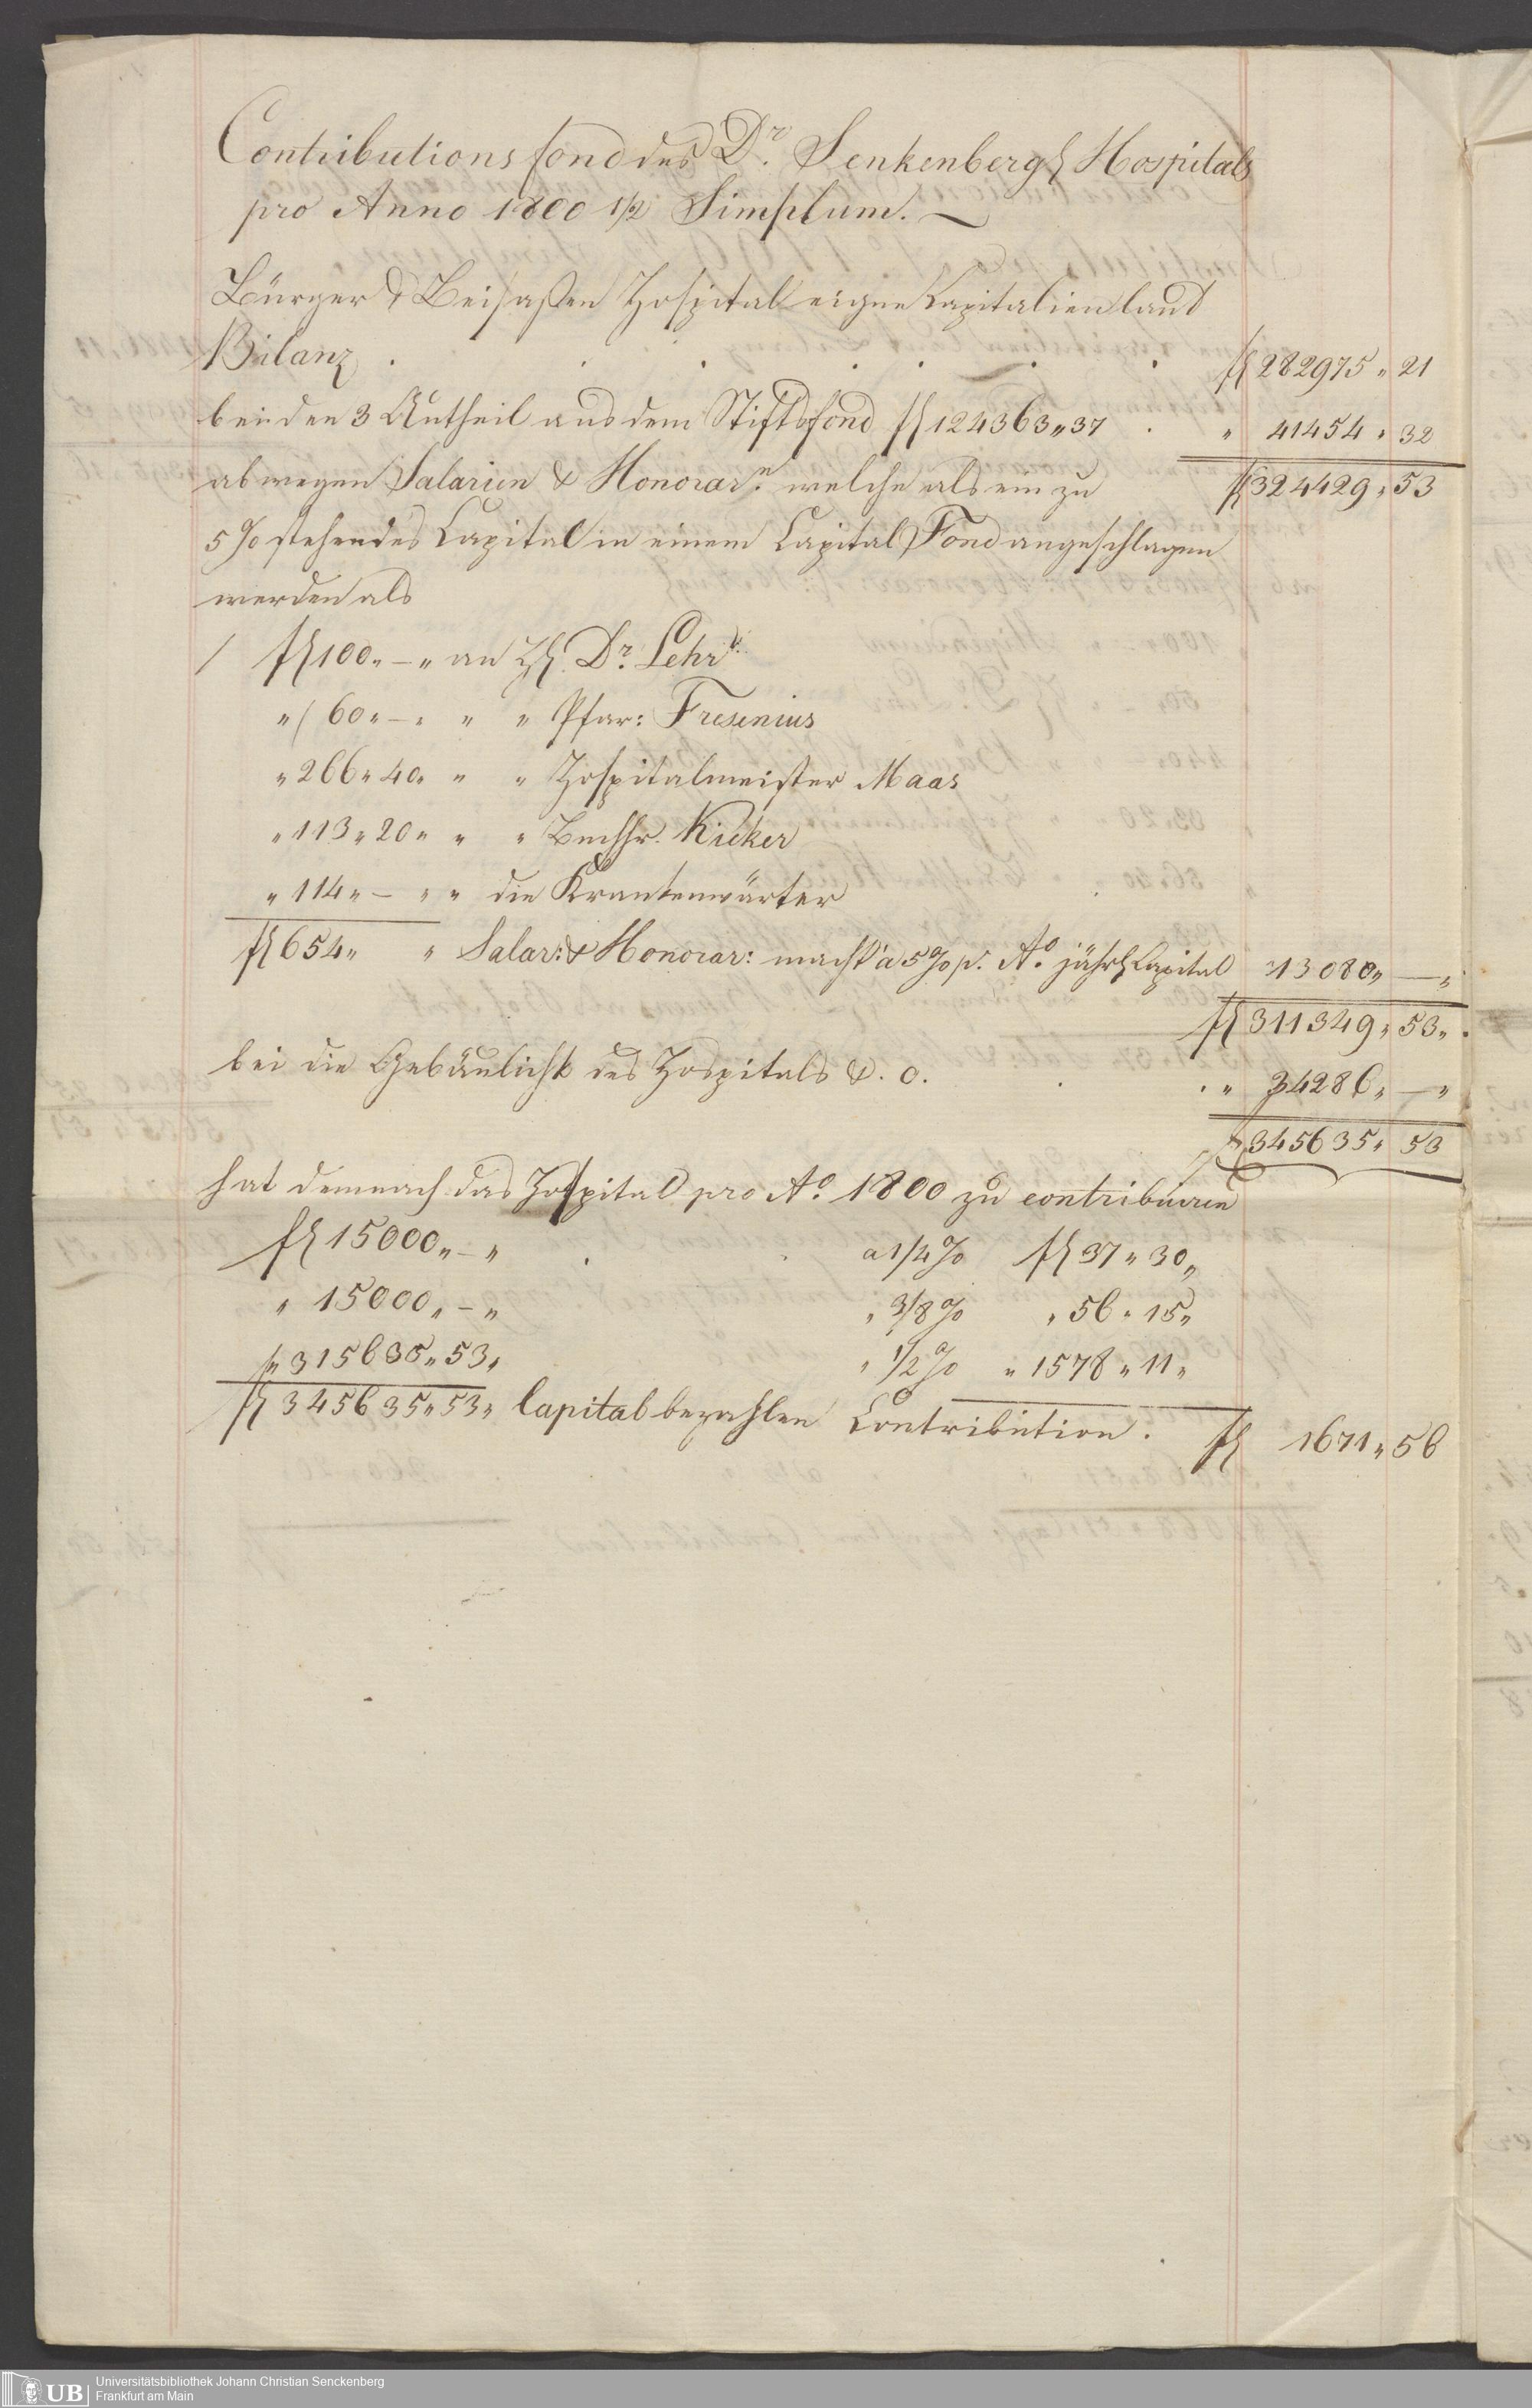 Contributions fond des Dr. Senkenbergl Hospitals
pro Anno 1800 1/2 Simplum.
Bürger & Beisaßen Hospital eigne Capitalien laut
Bilanz . . . . . . . fl 282975 " 21
bei den 3 Antheil aus dem Stiftsfond fl 124363 " 37 . " 41454 " 32
ab wegen Salarien & Honorarn welche als ein zu fl 324429 " 53
5 % stehendes Capital in einem Capital Fond angeschlagen
werden als
/ fl 100 " — " an Hl. Dr. Lehr
" 60 " — " " " Pfar: Fresenius
" 266 " 40 " " " Hospitalmeister Maas
" 113 " 20 " " " Buchhr. Kicker
" 114 " — " " die Krankenwärter
fl 654 " " Salar: & Honorar: macht a 5 % p. Ao. jährl Capital 13080 " — "
fl 311349 " 53 "
bei die Gebäulichk des Hospitals &. o. . . " 34286 " — "
fl 345635 " 53
hat demnach das Hospital pro Ao. 1800 zu contribuiren
fl 15000 " — " . . a 1/4 % fl 37 " 30 "
" 15000 " — " " 3/8 % " 56 " 15 "
" 315635 " 53 " " 1/2 % " 1578 " 11 "
fl 345635 " 53 " Capital bezahlen Contribution . fl 1671 " 56
UB Universitätsbibliothek Johann Christian Senckenberg
Frankfurt am Main